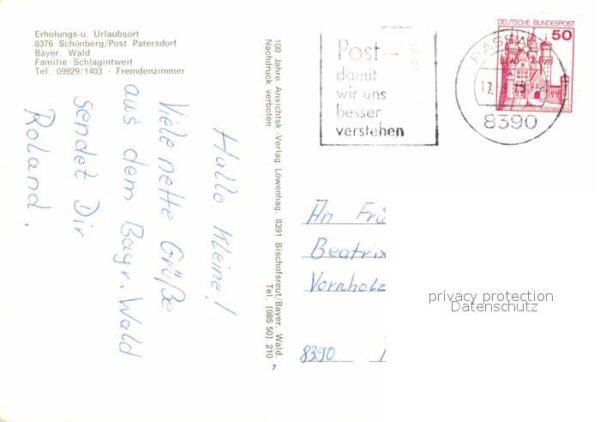 Erholungs-u. Urlaubsort
8376 Schönberg/Post Patersdorf
Bayer. Wald
Familie Schlagintweit
Tel. 09929/1403 · Fremdenzimmer
Hallo Kleine!
Viele nette Grüße
aus dem Bayr. Wald
sendet Dir
Roland.
100 Jahre Ansichtsk.-Verlag Löwenhag, 8391 Bischofsreut/Bayer. Wald.
Nachdruck verboten Tel. (085 50) 210
7
Post-
damit
wir uns
besser
verstehen
PASSAU
8390
DEUTSCHE BUNDESPOST
50
An Frä
Beatrix
Vornholz
8390
privacy protection
Datenschutz